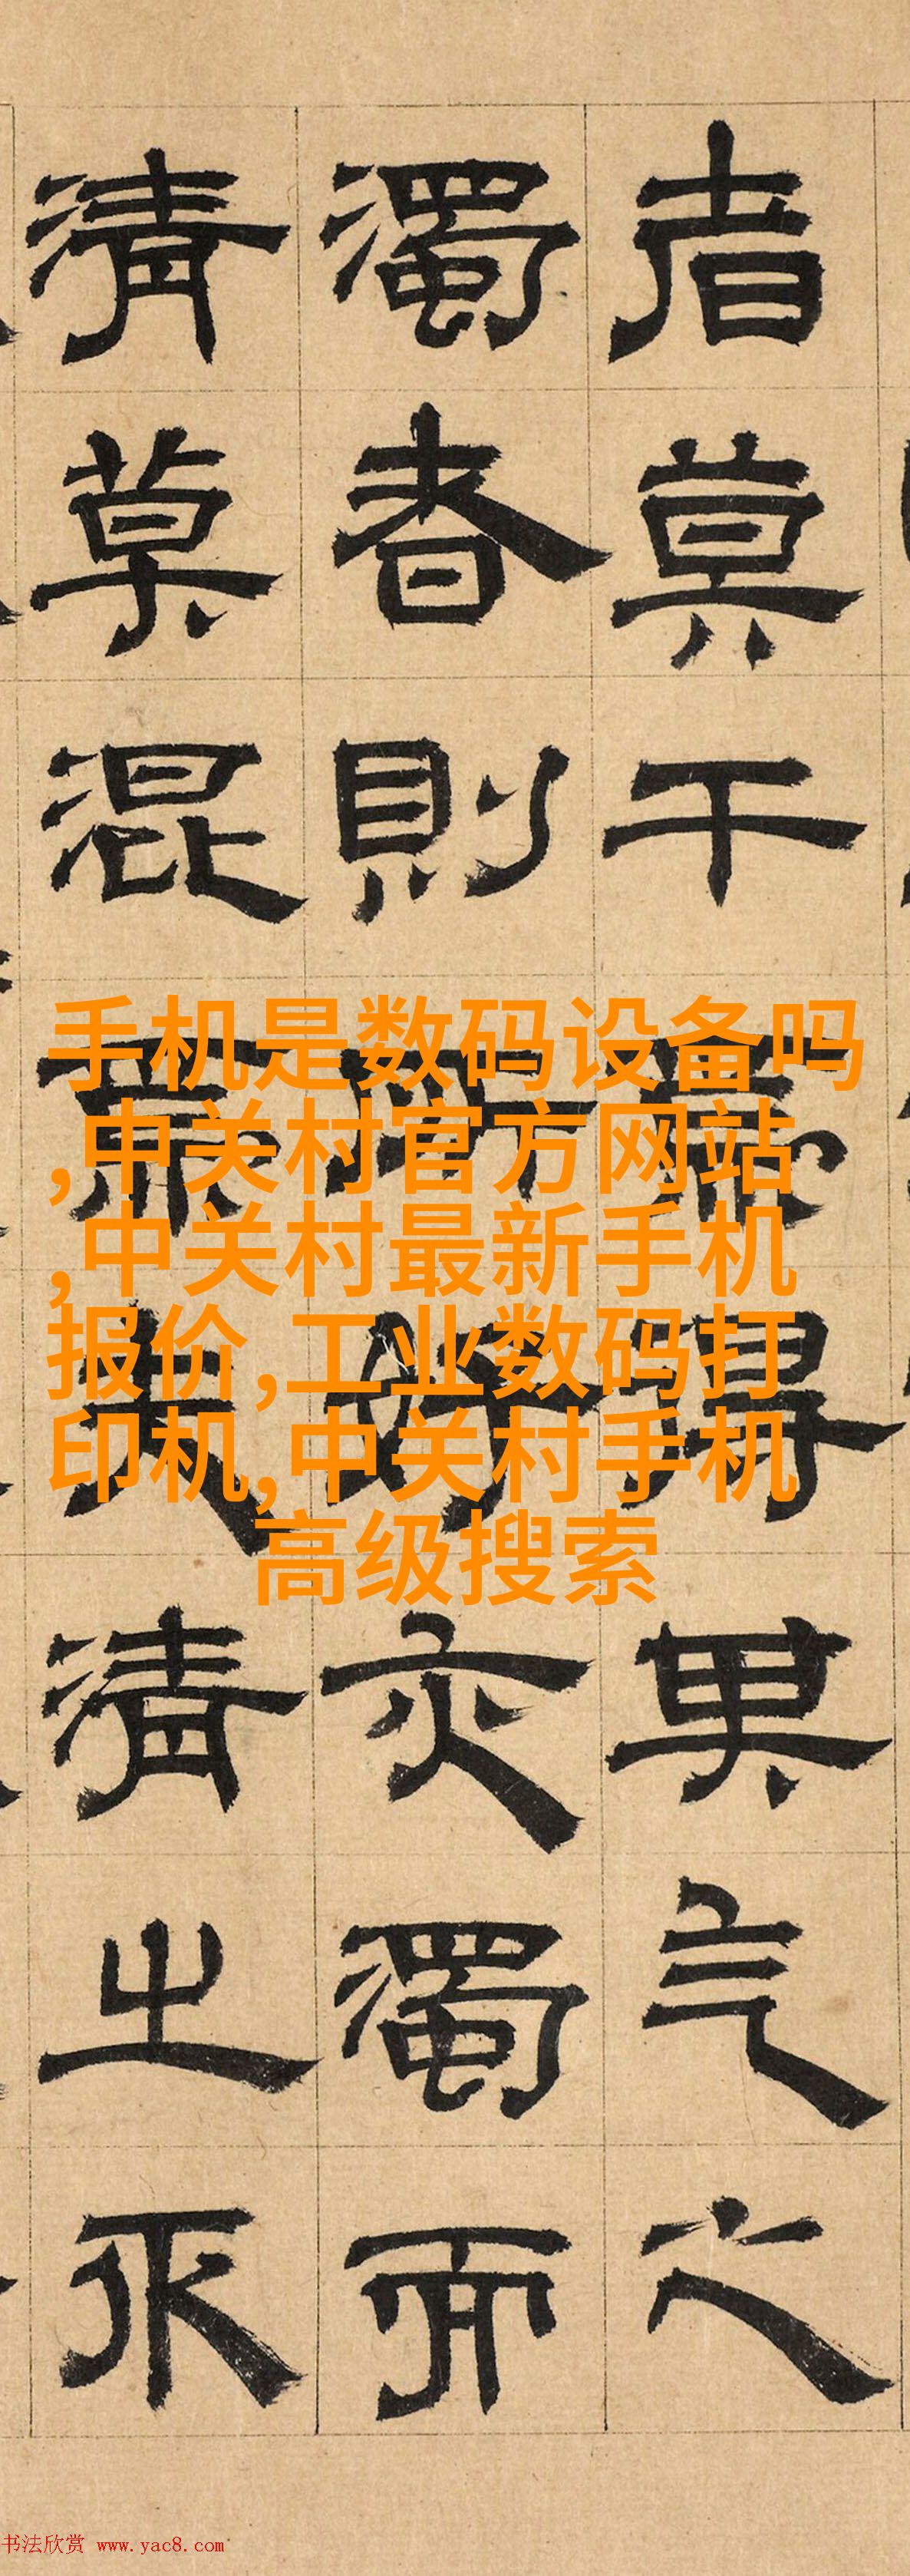 者莫干得其气之
濁者則所好亦濁而
清莫混清之
手机是数码设备吗
,中关村官方网站
,中关村最新手机
报价,工业数码打
印机,中关村手机
高级搜索
书法欣赏 www.yac8.com